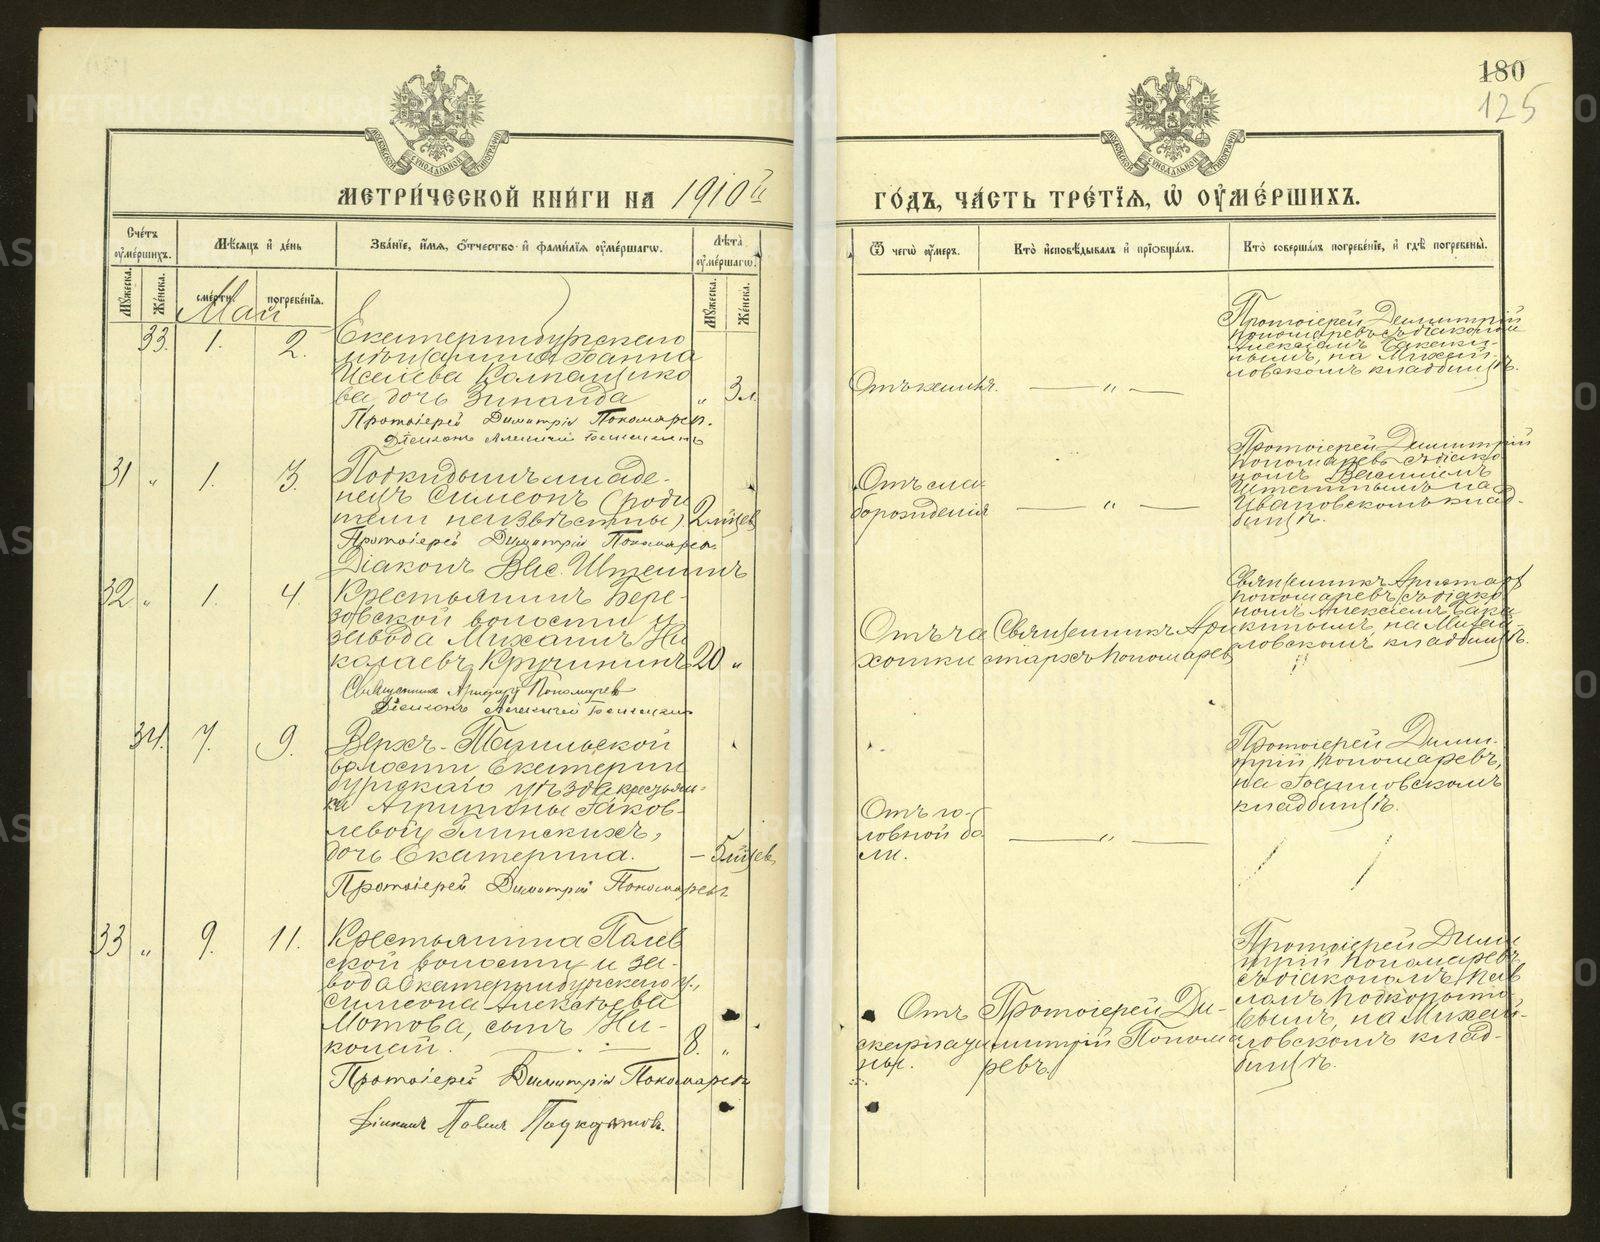 180
125
МЕТРИ́ЧЕСКОЙ КНИ́ГИ НА 1910й
ГО́ДЪ, ЧА́СТЬ ТРЕ́ТЇЯ, Ѡ҆ ОУ҆МЕ́РШИХЪ.
Сче́тъ оу҆ме́ршихъ.
Мѣ́сяцъ и҆ де́нь
Зва́нїе, и҆́мя, ѻ҆́тчество и҆ фами́лїя оу҆ме́ршагѡ.
Лѣ́та оу҆ме́ршагѡ.
Ѿ чегѡ̀ оу҆́меръ.
Кто̀ и҆сповѣ́дывалъ и҆ прїѻбща́лъ.
Кто̀ соверша́лъ погребе́нїе, и҆ гдѣ̀ погребены̀.
Мꙋ́жеска.
Же́нска.
сме́рти.
погребе́нїя.
Мꙋ́жеска.
Же́нска.
Май
33. 1. 2.
Екатеринбургскаго
мѣщанина Іоанна
Иселева Колпащико
ва дочь Зинаида
„ 3 л.
Протоіерей Димитрій Пономарев.
Отъ кашля.
— „ —
Протоіерей Димитрій
Пономаревъ съ діакономъ
нымъ, на Михай-
ловскомъ кладбищѣ.
31 „ 1. 3.
Подкидышъ младе-
нецъ Симеонъ (роди
тели неизвѣстны)
2 мѣсяцев
Протоіерей Димитрій Пономарев.
Діаконъ Вас. Иштенинъ
Отъ сла-
борожденія
— „ —
Протоіерей Димитрій
Пономаревъ съ діако-
номъ Василіемъ
на
Ивановскомъ клад-
бищѣ.
32 „ 1. 4.
Крестьянинъ Бере-
зовской волости и
завода Михаилъ Ни
колаевъ Кручининъ
20 „
Священник Аристарх Пономарев
Отъ ча
хотки
Священникъ Ари
стархъ Пономаревъ
Священникъ Аристарх
Пономаревъ съ діако-
номъ Алексіемъ Бака
кинымъ на Михай-
ловскомъ кладбищѣ.
34. 7. 9.
Верхъ-Тагильской
волости Екатерин
бургскаго уѣзда крестьян-
ки Агрипины Іаков-
левой Глинскихъ,
дочь Екатерина.
— 5 мѣсяцев.
Протоіерей Димитрій Пономарев
Отъ го-
ловной бо
ли.
— „ —
Протоіерей Дими-
трій Пономаревъ,
на Іоанновскомъ
кладбищѣ.
33 „ 9. 11.
Крестьянина Полев
ской волости и за-
вода Екатеринбургскаго у.,
Симеона Алексѣева
Мотова, сынъ Ни-
колай.
8. „
Протоіерей Димитрій Пономарев
Діаконъ Павелъ Подкорытов.
Отъ
скарлати
ны.
Протоіерей Ди-
митрій Понома
ревъ
Протоіерей Дими
трій Пономаревъ
съ діакономъ Пав
ломъ Подкорыто
вымъ, на Михай-
ловскомъ клад-
бищѣ.